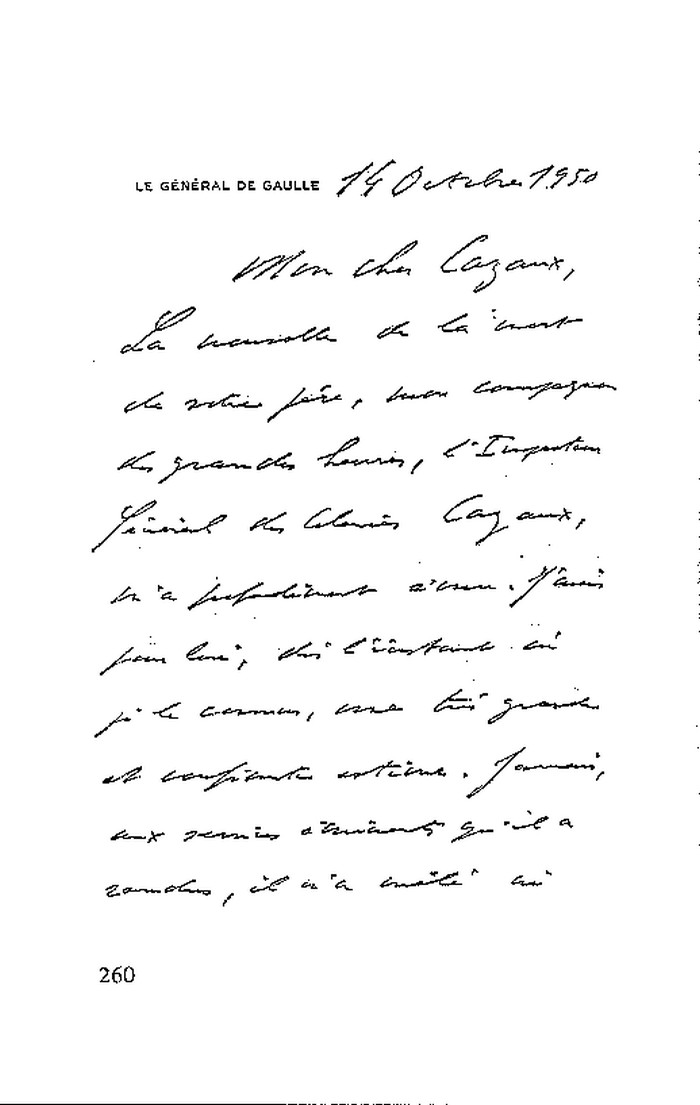 LE GÉNÉRAL DE GAULLE 14 Octobre 1950
Mon cher Cazaux,
La nouvelle de la mort
de votre père, mon compagnon
des grandes heures, l'Inspecteur
Général des Colonies Cazaux,
m'a profondément ému. J'avais
pour lui, dès l'instant où
je le connus, une très grande
et confiante estime. Jamais,
aux services éminents qu'il a
rendus, il n'a mêlé ni
260